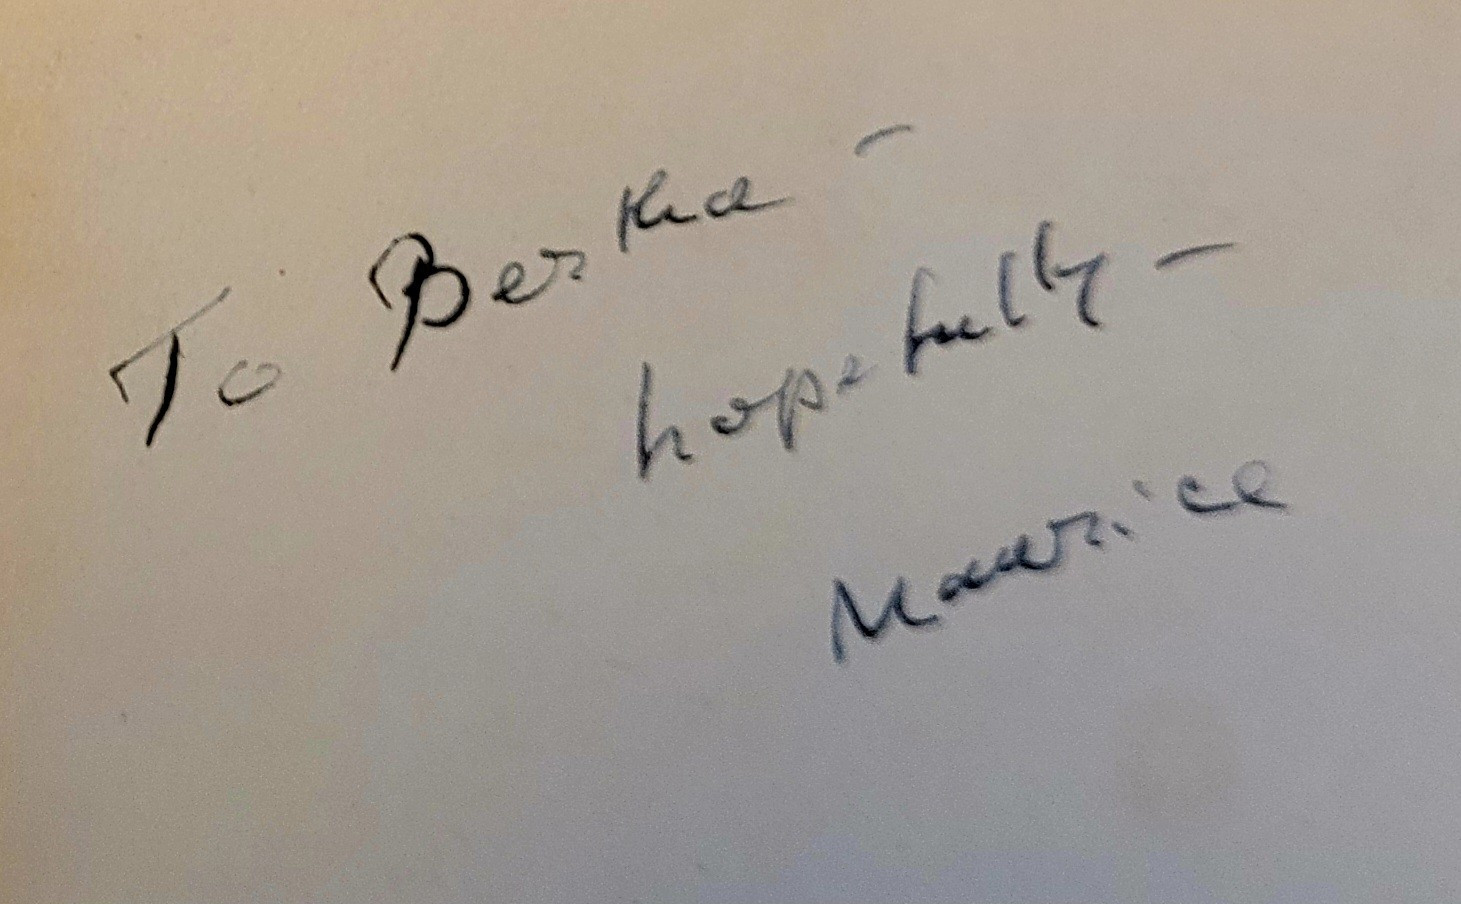 To Bertha –
hopefully –
Maurice